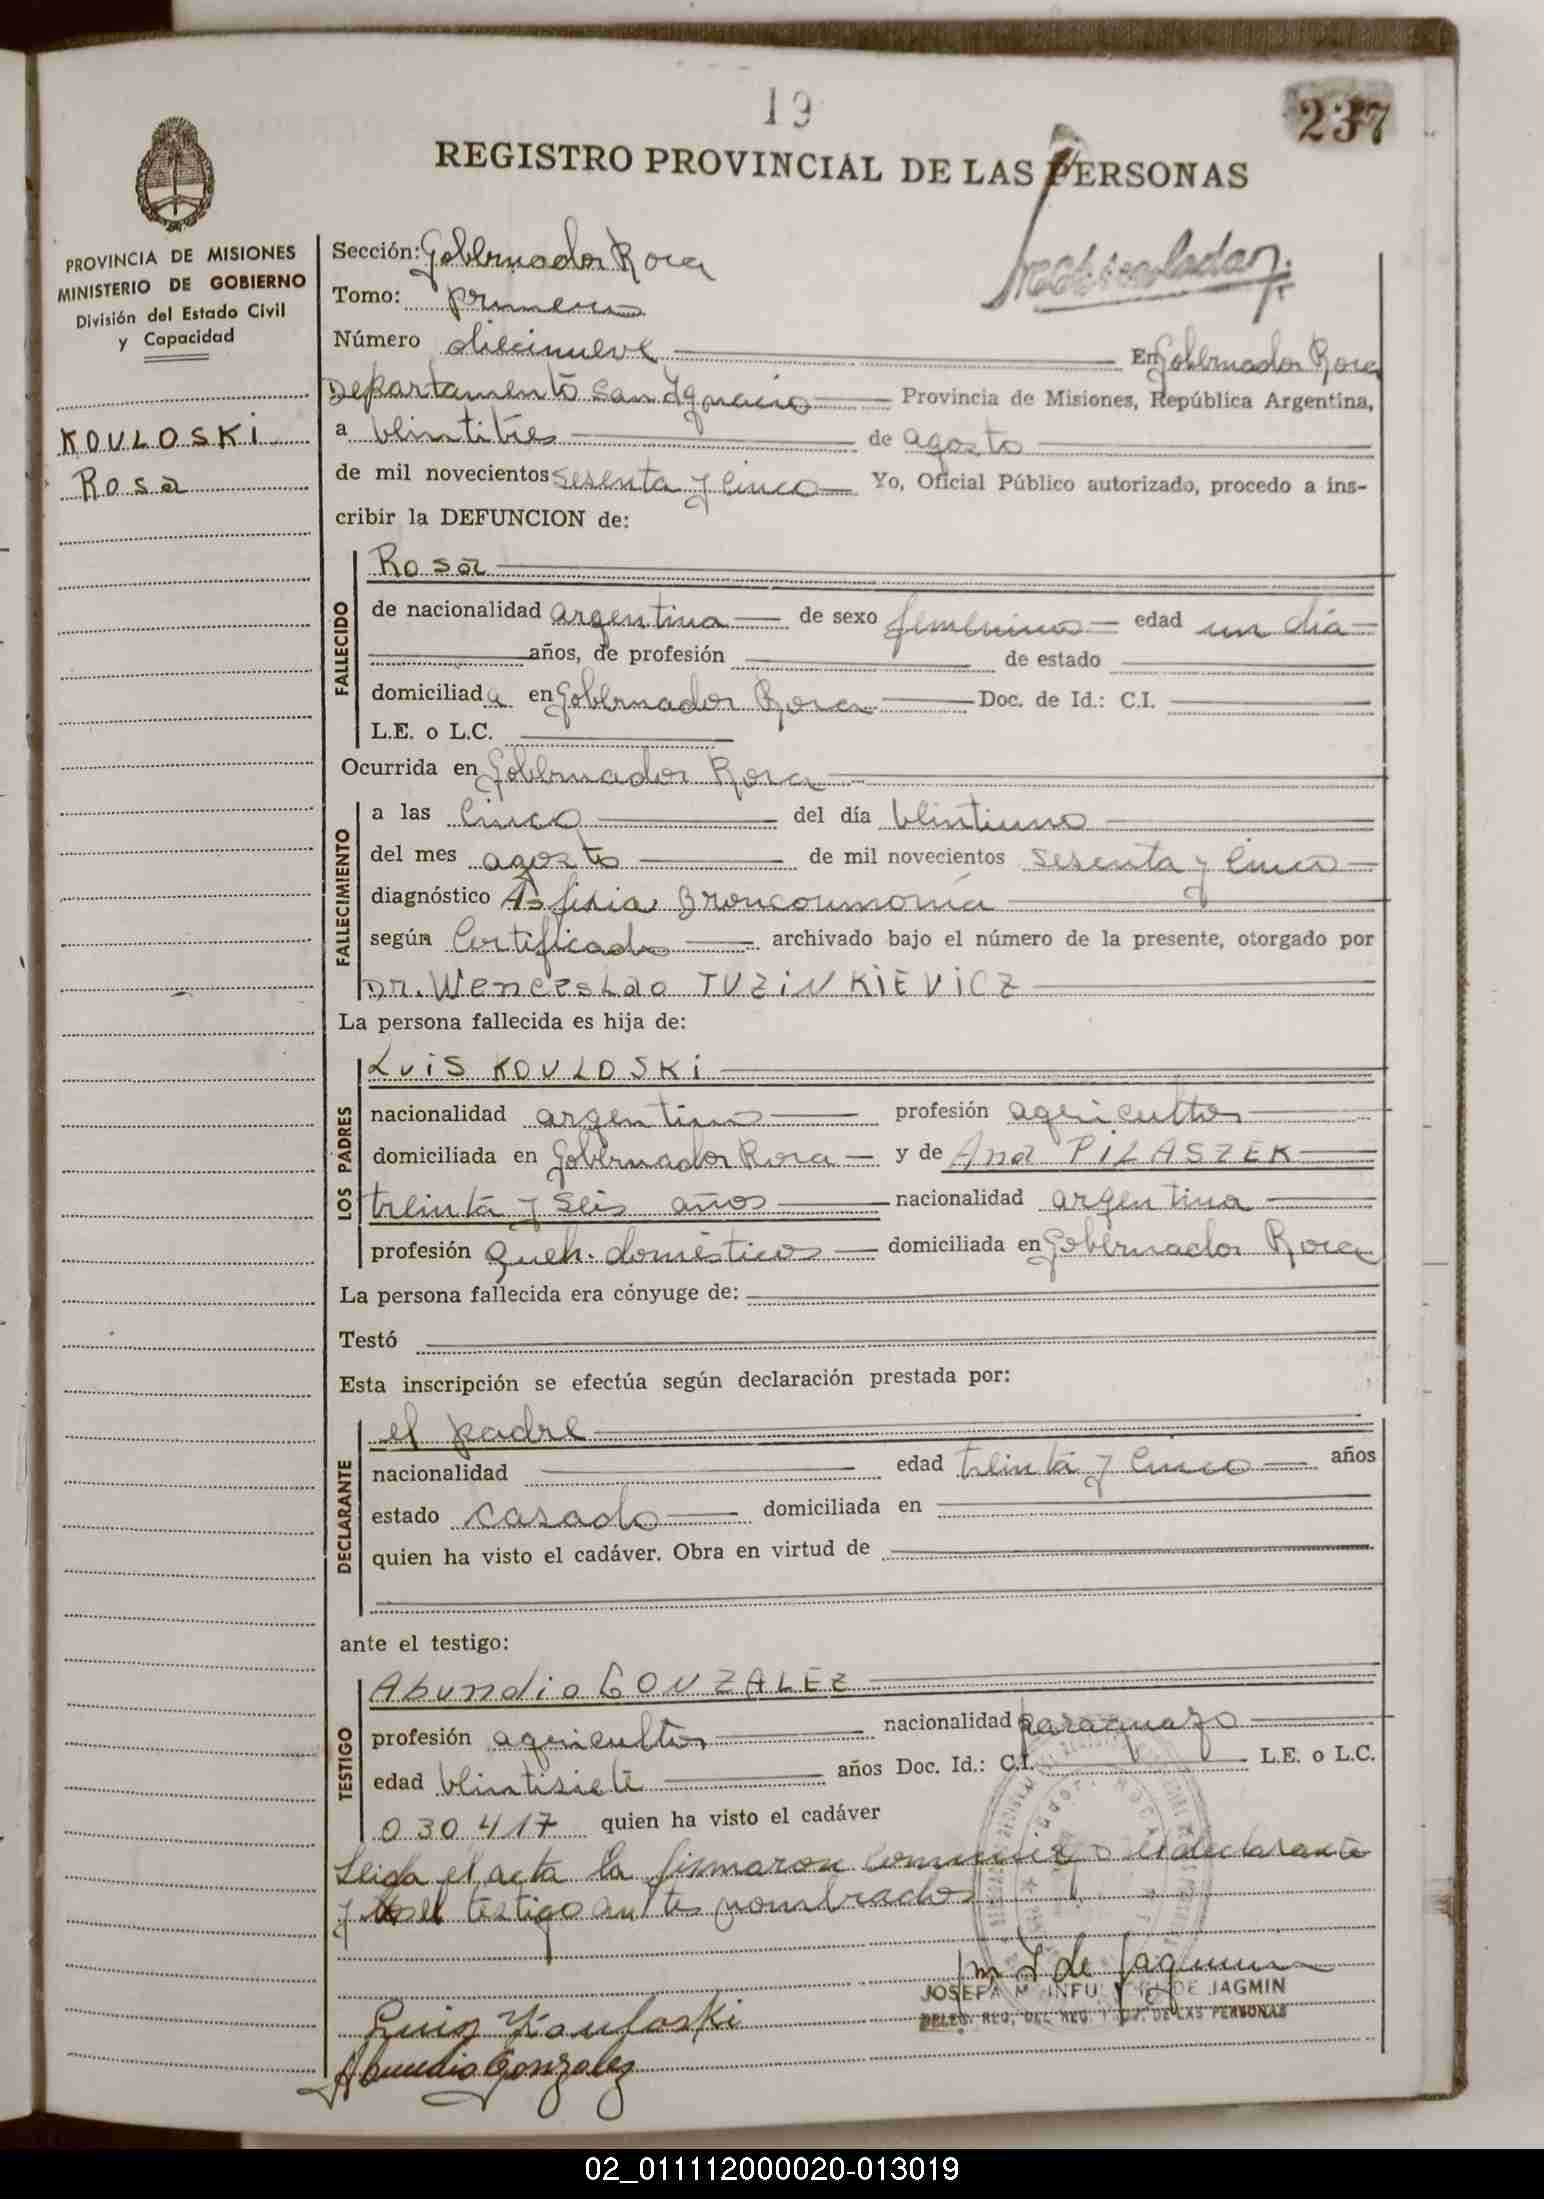 19
237
REGISTRO PROVINCIAL DE LAS PERSONAS
PROVINCIA DE MISIONES
MINISTERIO DE GOBIERNO
División del Estado Civil
y Capacidad
KOULOSKI
Rosa
Sección: Gobernador Roca
Tomo: primero
Número diecinueve En Gobernador Roca
Departamento San Ignacio Provincia de Misiones, República Argentina,
a veintitres de agosto
de mil novecientos sesenta y cinco Yo, Oficial Público autorizado, procedo a ins-
cribir la DEFUNCION de:
FALLECIDO
Rosa
de nacionalidad argentina de sexo femenino edad un día
años, de profesión de estado
domiciliada en Gobernador Roca Doc. de Id.: C.I.
L.E. o L.C.
Ocurrida en Gobernador Roca
FALLECIMIENTO
a las cinco del día veintiuno
del mes agosto de mil novecientos sesenta y cinco
diagnóstico Asfixia Broncoumonía
según Certificado archivado bajo el número de la presente, otorgado por
Dr. Wenceslao TUZINKIEVICZ
La persona fallecida es hija de:
LOS PADRES
Luis KOULOSKI
nacionalidad argentino profesión agricultor
domiciliada en Gobernador Roca y de Ana PILASZEK
treinta y seis años nacionalidad argentina
profesión queh. domésticos domiciliada en Gobernador Roca
La persona fallecida era cónyuge de:
Testó
Esta inscripción se efectúa según declaración prestada por:
DECLARANTE
el padre
nacionalidad edad treinta y cinco años
estado casado domiciliada en
quien ha visto el cadáver. Obra en virtud de
ante el testigo:
TESTIGO
Abundio GONZALEZ
profesión agricultor nacionalidad paraguayo
edad veintisiete años Doc. Id.: C.I. L.E. o L.C.
030417 quien ha visto el cadáver
Leida el acta la firmaron conmigo el declarante
y el testigo antes nombrados
M I de Jagmin
JOSEFA M DE JAGMIN
DELEG. REG. DEL REG. DE LAS PERSONAS
Luis Kouloski
Abundio Gonzalez
02_011112000020-013019